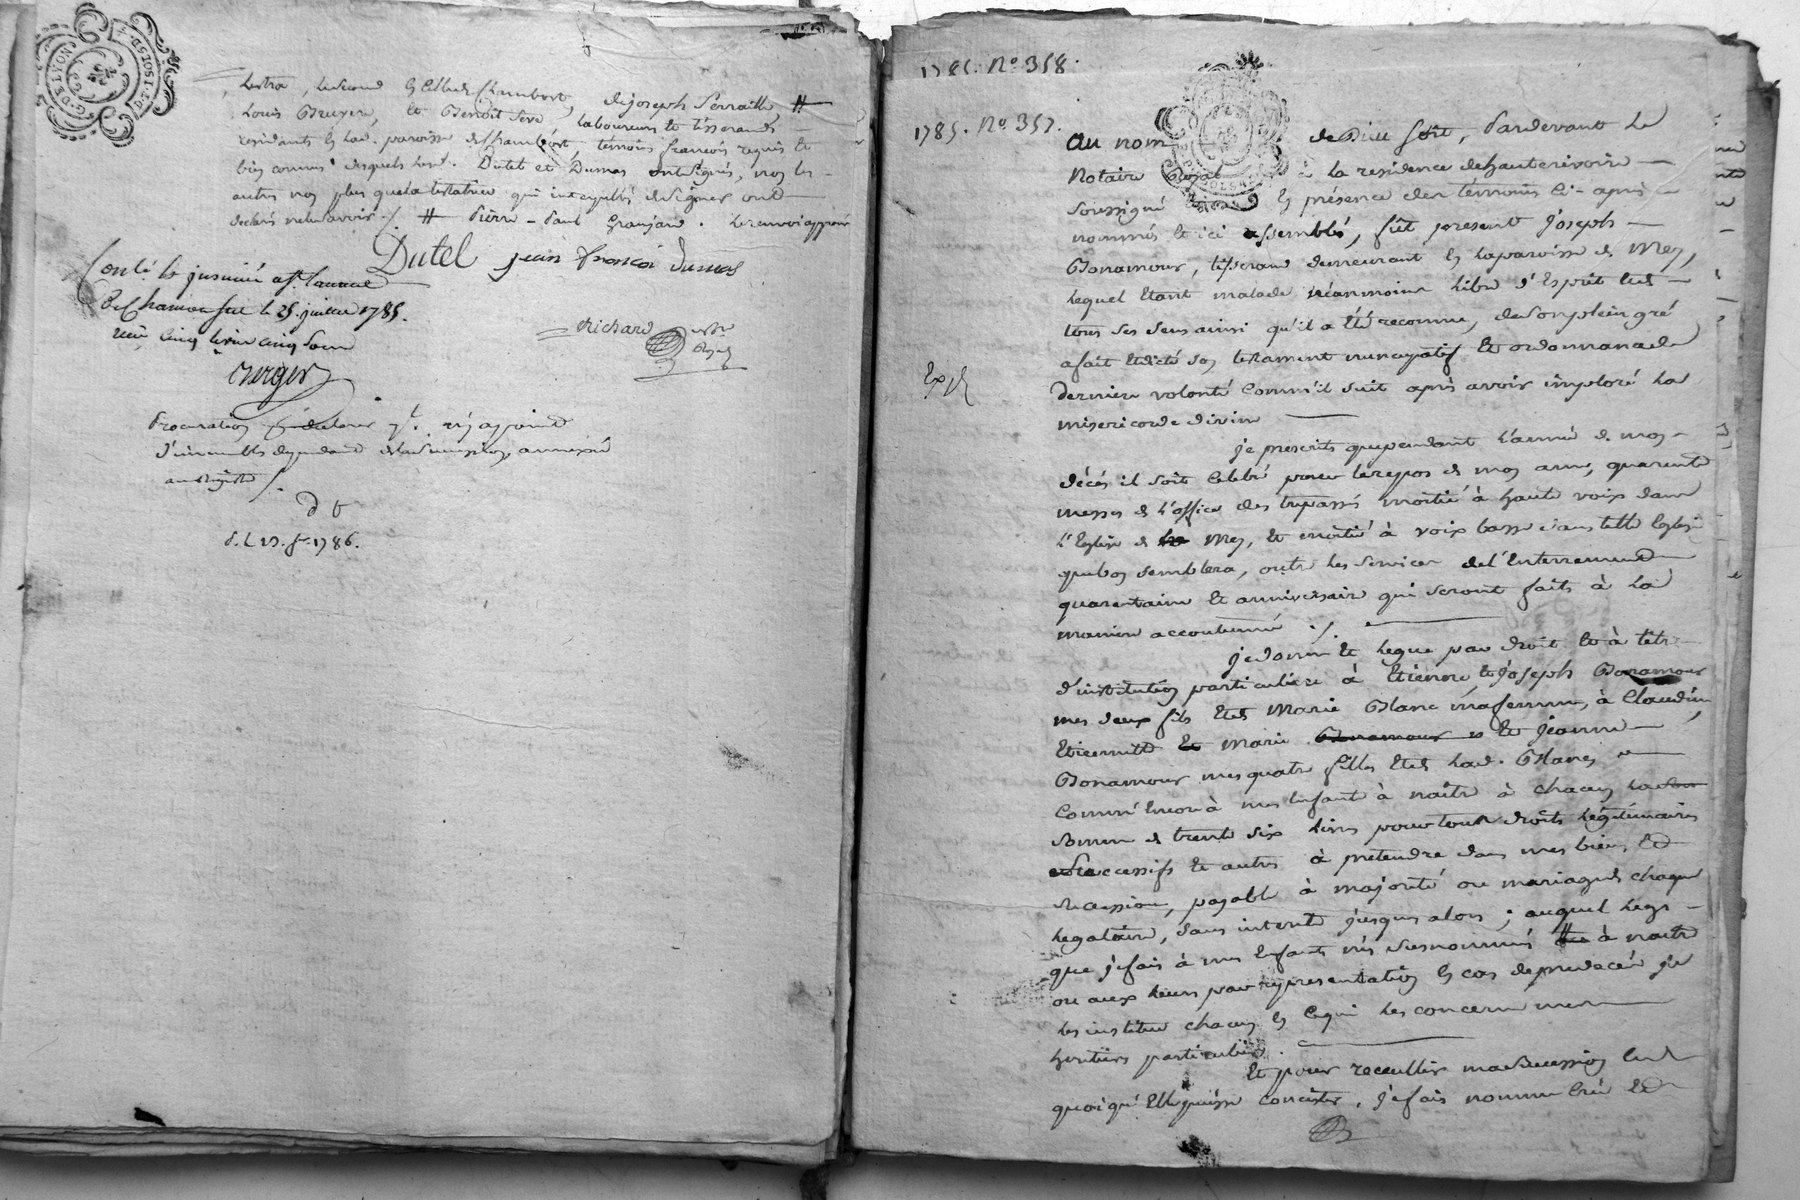 G. DE LYON
DEUX SOLS 4 D. P. F.
, le second & Clude Chambost, de Joseph Perraille #
Louis Bruyere, et Benoit Seve laboureurs et tisserands
residants en lad. paroisse de Chambost, temoins francois requis et
bien connus desquels lesd. Dutel et Dumas ont signés, non les
autres non plus que la testatrice qui interpellés de signer ont
declaré ne le savoir ./. # Pierre-Paul Granjard. le renvoi approuvé
Dutel jean françois dumas
Conlé & insinué a St. Laurent
De Chamousset le 25. juillet 1785.
reçu cinq livres cinq sous
Richard not. Royal
Berger
Procuration
d'immeubles dependant annexée
au registre /.
1786.
1785. No. 358.
1785. No. 357.
Au nom de Dieu soit, Pardevant le
Notaire Royal à la residence de hauterivoire
soussigné en présence des temoins ci-après
nommés et ici assemblés, fût present Joseph
Bonamour, tisserand demeurant en la paroisse de Mey,
lequel etant malade néanmoins libre d'Esprit et de
tous ses sens ainsi qu'il a été reconnu, de son plein gré
a fait et dicté son testament nuncupatif et ordonnance de
Exp.
derniere volonté comm'il suit après avoir imploré la
misericorde divine
je prescrits que pendant l'année de mon
décés il soit celebré pour le repos de mon ame, quarente
messes de l'office des trepassés moitié à haute voix dans
l'Eglise de Mey, et moitié à voix basse dans telle Eglise
que bon semblera, outre les services de l'Enterrement
quarantaine et anniversaire qui seront faits à la
maniere accoutumée ./.
je donne et legue par droit et à titre
d'institution particuliere à Etienne, et Joseph Bonamour
mes deux fils et de Marie Blanc ma femme, à Claudine,
Etiennette et Marie Bonamour et Jeanne
Bonamour mes quatre filles et de lad. Blanc
comm'Encor à mes Enfants à naitre à chacun la
somme de trente six livres pour tous droits légitimaires
successifs et autres à pretendre dans mes biens et
succession, payable à majorité ou mariage de chaque
legataire, sans interet jusques alors ; auquel legs
que je fais à mes Enfants nés susnommés à naitre
ou aux leurs par representation en cas de predecés je
les institue chacun en ce qui les concerne mes
heritiers particuliers.
Et pour recueillir ma succession en
quoi qu'Elle puisse consister, je fais nomme crée et